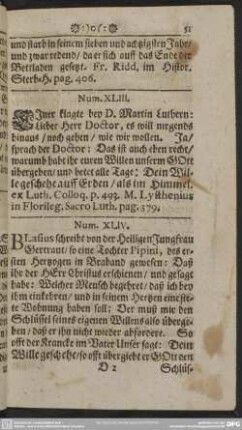 ·):o(· 51
und starb in seinem sieben und achtzigsten Jahr/
und zwar redend/ da er sich auff das Ende der
Bettladen gesetzt. Fr. Ridd, im Histor.
SterbeH. pag. 406.
Num. XLIII.
EIner klagte bey D. Martin Luthern:
Lieber Herr Doctor, es will nirgends
hinaus / noch gehen / wie wir wollen. Ja/
sprach der Doctor: Das ist auch eben recht/
warumb habt ihr euren Willen unserm GOtt
übergeben/ und betet alle Tage: Dein Wil-
le geschehe auff Erden / als im Himmel.
ex Luth. Colloq. p. 493. M. Lysthenius
in Florileg. Sacro Luth. pag. 379.
Num. XLIV.
BLasius schreibt von der Heiligen Jungfrau
Gertraut/ so eine Tochter Pipini, des er-
sten Hertzogen in Braband gewesen: Daß
ihr der HErr Christus erschienen / und gesagt
habe: Welcher Mensch begehret/ daß ich bey
ihm einkehren/ und in seinem Hertzen eine ste-
te Wohnung haben soll: Der muß mir den
Schlüssel seines eigenen Willens also überge-
ben / daß er ihn nicht wieder abfordere. So
offt der Krancke im Vater Unser sagt: Dein
Wille geschehe/ so offt übergiebt er GOtt den
D 2 Schlüs-